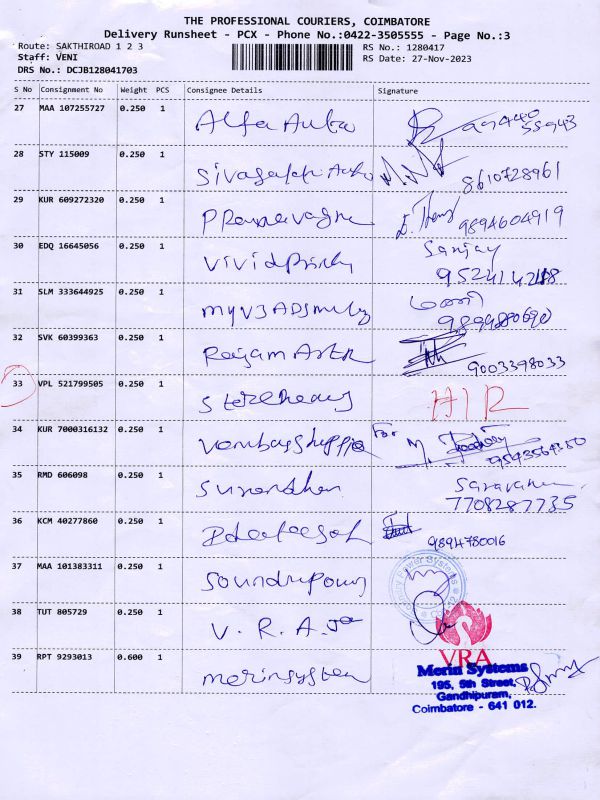 THE PROFESSIONAL COURIERS, COIMBATORE
Delivery Runsheet - PCX - Phone No.:0422-3505555 - Page No.:3
Route: SAKTHIROAD 1 2 3
RS No.: 1280417
Staff: VENI
RS Date: 27-Nov-2023
DRS No.: DCJB128041703
S No Consignment No Weight PCS Consignee Details Signature
27 MAA 107255727 0.250 1 Alfa Auto 99440
55943
28 STY 115009 0.250 1
8610728961
29 KUR 609272320 0.250 1
9894604919
30 EDQ 16645056 0.250 1 Sanjay
31 SLM 333644925 0.250 1 myV3 ADS மணி
32 SVK 60399363 0.250 1 9003398033
33 VPL 521799505 0.250 1 H/R
34 KUR 7000316132 0.250 1 For
35 RMD 606098 0.250 1 Surendhar
7708287735
36 KCM 40277860 0.250 1
9894780016
37 MAA 101383311 0.250 1
Power Systems
38 TUT 805729 0.250 1 V. R. A.
VRA
39 RPT 9293013 0.600 1 merinsystem
Merin Systems
195, 5th Street,
Gandhipuram,
Coimbatore - 641 012.